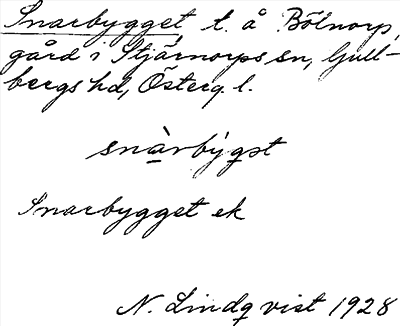 Snarbygget, t. å Bölnorp,
gård i Stjärnorps sn, Gull-
bergs hd, Österg. l.
snàrbýgət
Snarbygget ek
N. Lindqvist 1928